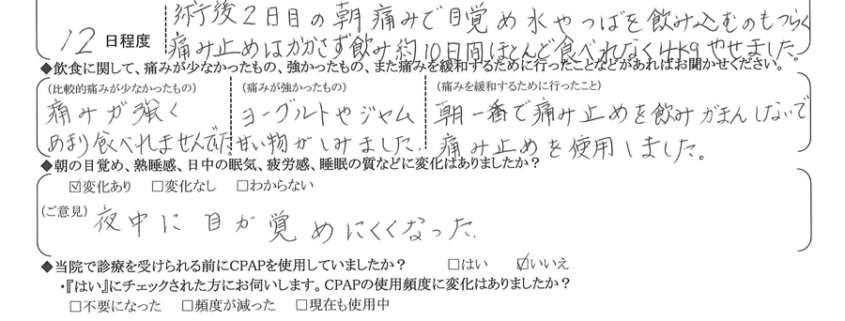 術後2日目の朝痛みで目覚め水やつばを飲み込むのもつらく
12 日程度 痛み止めはかかさず飲み約10日間ほとんど食べれなく4kgやせました。
◆飲食に関して、痛みが少なかったもの、強かったもの、また痛みを緩和するために行ったことなどがあればお聞かせください。
(比較的痛みが少なかったもの) (痛みが強かったもの) (痛みを緩和するために行ったこと)
痛みが強く ヨーグルトやジャム 朝一番で痛み止めを飲みがまんしないで
あまり食べれませんでした 甘い物がしみました. 痛み止めを使用しました。
◆朝の目覚め、熟睡感、日中の眠気、疲労感、睡眠の質などに変化はありましたか?
☑変化あり □変化なし □わからない
(ご意見) 夜中に目が覚めにくくなった.
◆当院で診療を受けられる前にCPAPを使用していましたか? □はい ☑いいえ
・『はい』にチェックされた方にお伺いします。CPAPの使用頻度に変化はありましたか?
□不要になった □頻度が減った □現在も使用中